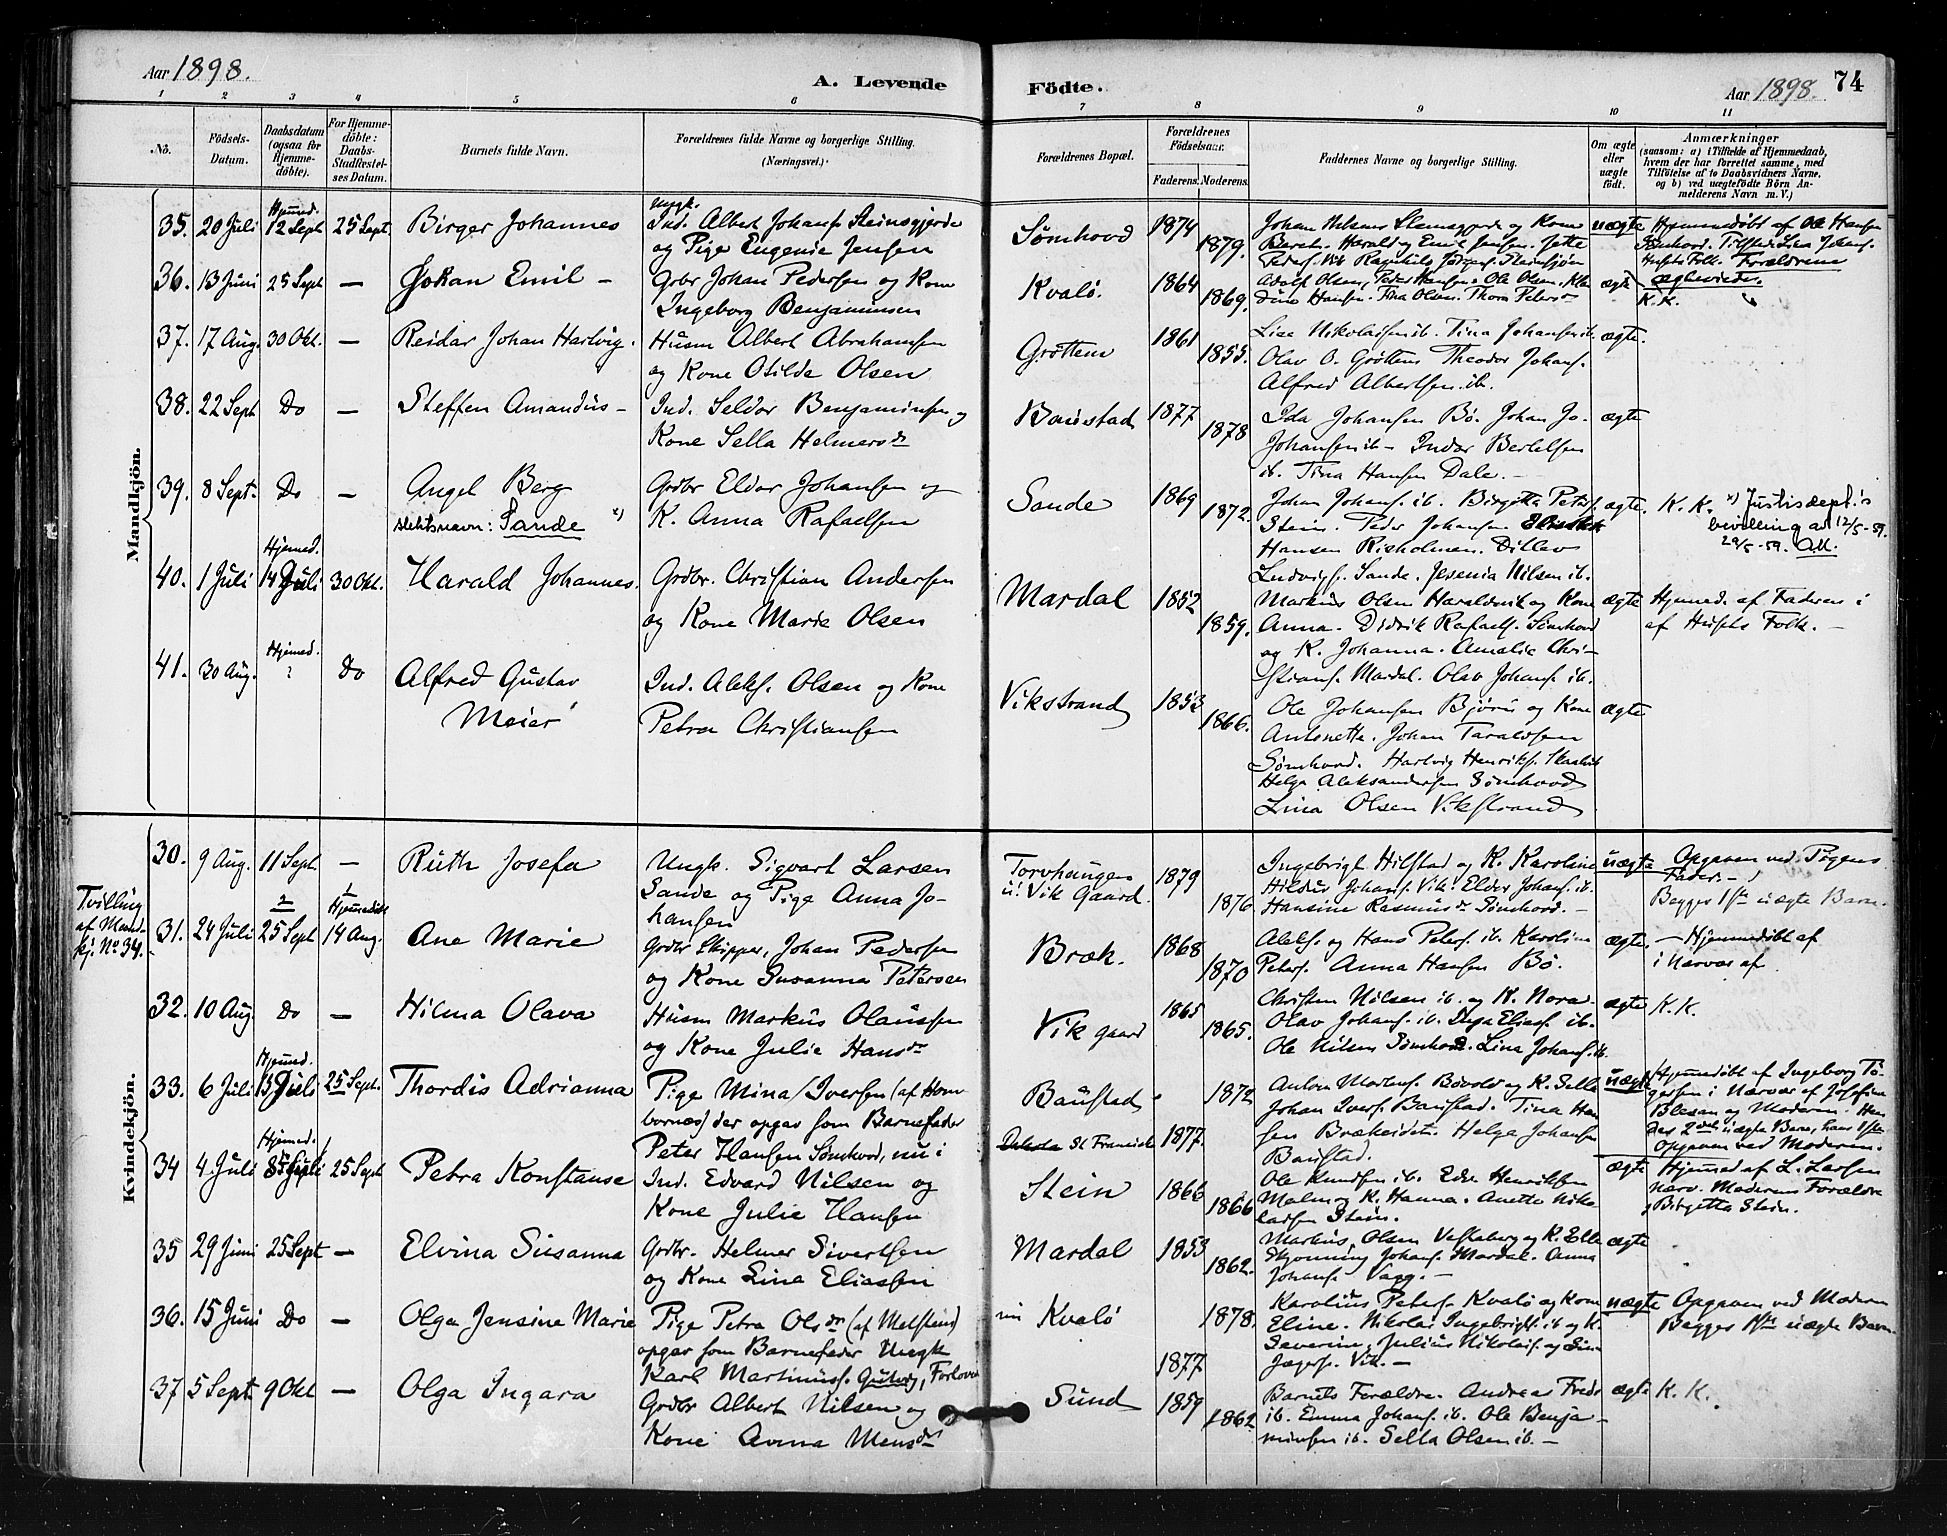 Aar 1898.
A. Levende
Födte.
Aar 1898.
74
1 2 3 4 5 6 7 8 9 10 11
No.
Födsels-Datum.
Daabsdatum (ogsaa for Hjemme-döbte).
For Hjemme-döbte: Daabs-Stadfæstel-ses Datum.
Barnets fulde Navn.
Forældrenes fulde Navne og borgerlige Stilling. (Næringsvei.)
Forældrenes Bopæl.
Forældrenes Födselsaar.
Faderens. Moderens.
Faddernes Navne og borgerlige Stilling.
Om ægte eller uægte födt.
Anmærkninger
(saasom: a) i Tilfælde af Hjemmedaab, hvem der har forrettet samme, med Tilföielse af to Daabsvidners Navne. og b) ved uægtefödte Börn An-melderens Navn m. V.)
Mandkjön.
35. 20 Juli Hjemmed. 12 Sept 25 Sept Birger Johannes
Ungk. Ind. Albert Johans. Steinsgjerde
og Pige Eugenie Jensen
Sømhovd 1874 1879.
Johan Nilsen Steinsgjerde og Kone
Harald og Emil Jensen.
uægte Hjemmedöbt af Ole Hansen
Sömhovd. Lina Johans.
Husets Folk. Forældrene
ægteviede.
36. 13 Juni 25 Sept — Johan Emil —
Grbr Johan Pedersen og Kone
Ingeborg Benjaminsen
Kvalö. 1864 1869.
Adolf Olsen, Peder Hansen. Ole Olsen.
Hansen. Tina Olsen.
ægte K.K.
37. 17 Aug. 30 Okt. — Reidar Johan Hartvig.
Husm Albert Abrahamsen
og Kone Otilde Olsen
Grøttem 1861 1855.
Lise Nikolaisen ib. Tina Johansen ib.
Olav O. Gröttem Theodor Johans.
Alfred Albertsen ib.
ægte.
38. 22 Sept Do — Steffen Amandus —
Ind. Seldor Benjaminsen og
Kone Sella Helmersdr
Baustad 1877 1878
Ida Johansen Bö. Johan Jo-
Johansen ib — Indar Bertelsen
ib. Tina Hansen Dale. —
ægte
39. 8 Sept. Do — Angel Berg
slektsnavn: Sande x)
Grdbr Eldor Johansen og
K. Anna Rafaelsen
Sande 1869 1872.
Johan Johans. ib. Birgitta Peters.
Stein. Peder Johansen
Hansen Risholmen. Ditlev
Ludvigs. Sande. Jesenia Nilsen ib.
ægte. K.K. x) Justisdept.'s
bevilling av 12/5-59.
29/5-59. AM.
40. 1 Juli Hjemmed. 14 Juli 30 Okt. Harald Johannes.
Grdbr. Christian Andersen
og Kone Marie Olsen
Mardal 1852 1859.
Markus Olsen Haraldsvik og Kone
Anna. Didrik Rafaels. Sömhovd
og K. Johanna. Amalie Chri-
stians. Mardal. Olav Johans. ib.
ægte Hjemmed. af Faderen i
af Husets Folk. —
41. 30 Aug. Hjemmed. ? Do Alfred Gustav
Meier
Ind. Aleks. Olsen og Kone
Petra Christiansen
Vikstrand 1853 1866.
Ole Johansen Bjørus og Kone
Antonette. Johan Taraldsen
Sömhovd. Hartvig Henriks.
Helga Aleksandersen Sömhovd
Lina Olsen Vikstrand
ægte
Kvindekjön.
30. 9 Aug. 11 Sept — Ruth Josefa
Ungk. Sigvart Larsen
Sande og Pige Anna Jo-
hansen
Torvhaugen
u. Vik Gaard. 1879 1876
Ingebrigt Hilstad og K. Karoline
Hildus Johans. Vik. Eldor Johans. ib.
Hansine Rasmusdr Sömhovd. —
uægte Opgaven ved Pigens
Fader. —
Begges 1ste uægte Barn.
Tvilling
af Mand-
kj. No 34.
31. 24 Juli 2 25 Sept 1 Hjemmedöbt 14 Aug. Ane Marie
Grdbr Skipper, Johan Pedersen
og Kone Susanna Petersen
Bræk. 1868 1870
Aleks. og Hans Peters. ib. Karoline
Peters. Anna Hansen Bö.
ægte. — Hjemmedöbt af
i Nærvær af
32. 10 Aug. Do — Hilma Olava
Husm Markus Olaussen
og Kone Julie Hansdr
Vik gaard 1865 1865.
Christen Nilsen ib. og K. Nora
Olav Johans. ib. Inga Elias. ib.
Ole Nilsen Sömhovd. Lina Johans. ib.
ægte K.K.
33. 6 Juli Hjemmed. 13 Juli 25 Sept. Thordis Adrianna
Pige Mina Iversen (af Horn-
bornæs) der opgav som Barnefader
Peter Hansen Sömhovd, nu i
Baustad 1872
Dakota St Francisco 1877.
Anton Mortens. Bovold og K. Sella
Johan Ivers. Baustad. Tina Han
sen Brækeidet. Helga Johansen
Baustad.
uægte Hjemmedöbt af Ingeborg Tö-
gersen i Nærvær af Josefine
Blesan og Moderen. Hen-
des 2det uægte Barn, hans 1ste.
Opgaven ved Moderen.
34 4 Juli Hjemmed. 25 Sept Petra Konstanse
Ind. Edvard Nilsen og
Kone Julie Hansen
Stein 1866 1866
Ole Knudsen ib. Edv. Henriksen
Malm og K. Hanna. Anette Niko
laisen Stein.
ægte Hjemmed af L. Larsen
Nærv. Moderens Forældre
Birgitta Stein.
35 29 Juni 25 Sept — Elvina Susanna
Grdbr. Helmer Sivertsen
og Kone Lina Eliassen
Mardal 1853 1862.
Markus Olsen Vestaberg og K. Elle
Johans. Mardal. Anna
Johans. Vagg. —
ægte
36. 15 Juni Do — Olga Jensine Marie
Pige Petra Olsdr (af Melstein)
opgav som Barnefader Ungk
Karl Martinuss. Gutvig, Forlovet
nu Kvalö 1878. 1877
Karolius Peters. Kvalö og Kone
Eline. Nikolai Ingebrigts. ib og K.
Severine, Julius Nikolais. og
Jægers. Vik. —
uægte Opgaven ved Moderen
Begges 1ste uægte Barn.
37 5 Sept. 9 Okt — Olga Ingara
Grdbr Albert Nilsen og
Kone Anna Mensdr
Sund 1859 1862
Barnets Forældre. Andreas Freds
ib. Emma Johans. ib. Ole Benja-
minsen ib. Sella Olsen ib. —
ægte K.K.